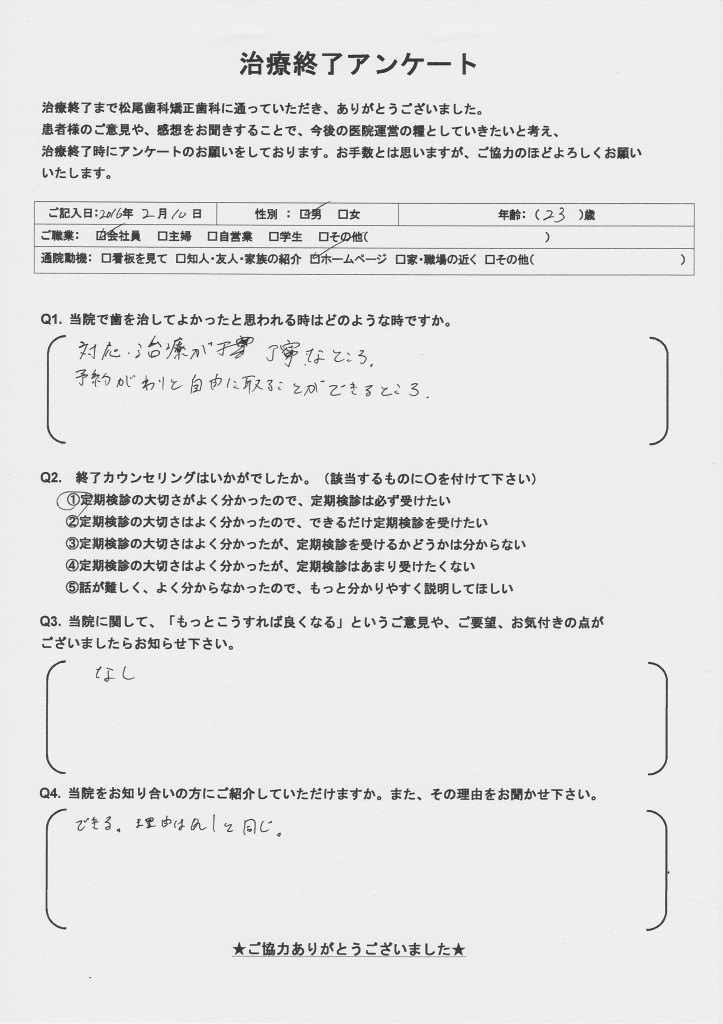 治療終了アンケート
治療終了まで松尾歯科矯正歯科に通っていただき、ありがとうございました。
患者様のご意見や、感想をお聞きすることで、今後の医院運営の糧としていきたいと考え、
治療終了時にアンケートのお願いをしております。お手数とは思いますが、ご協力のほどよろしくお願い
いたします。
ご記入日:2016年 2月10日 性別 : ☑男 □女 年齢:( 23 )歳
ご職業: ☑会社員 □主婦 □自営業 □学生 □その他( )
通院動機:□看板を見て □知人・友人・家族の紹介 ☑ホームページ □家・職場の近く □その他( )
Q1. 当院で歯を治してよかったと思われる時はどのような時ですか。
対応・治療が 丁寧なところ。
予約がわりと自由に取ることができるところ。
Q2. 終了カウンセリングはいかがでしたか。（該当するものに〇を付けて下さい）
①定期検診の大切さがよく分かったので、定期検診は必ず受けたい
②定期検診の大切さはよく分かったので、できるだけ定期検診を受けたい
③定期検診の大切さはよく分かったが、定期検診を受けるかどうかは分からない
④定期検診の大切さはよく分かったが、定期検診はあまり受けたくない
⑤話が難しく、よく分からなかったので、もっと分かりやすく説明してほしい
Q3. 当院に関して、「もっとこうすれば良くなる」というご意見や、ご要望、お気付きの点が
ございましたらお知らせ下さい。
なし
Q4. 当院をお知り合いの方にご紹介していただけますか。また、その理由をお聞かせ下さい。
できる。理由はQ1と同じ。
★ご協力ありがとうございました★